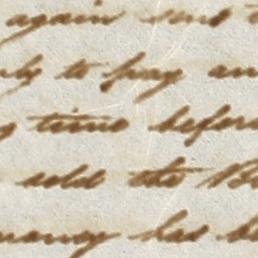 again sent
to pay an
time before
sold the B
money has b